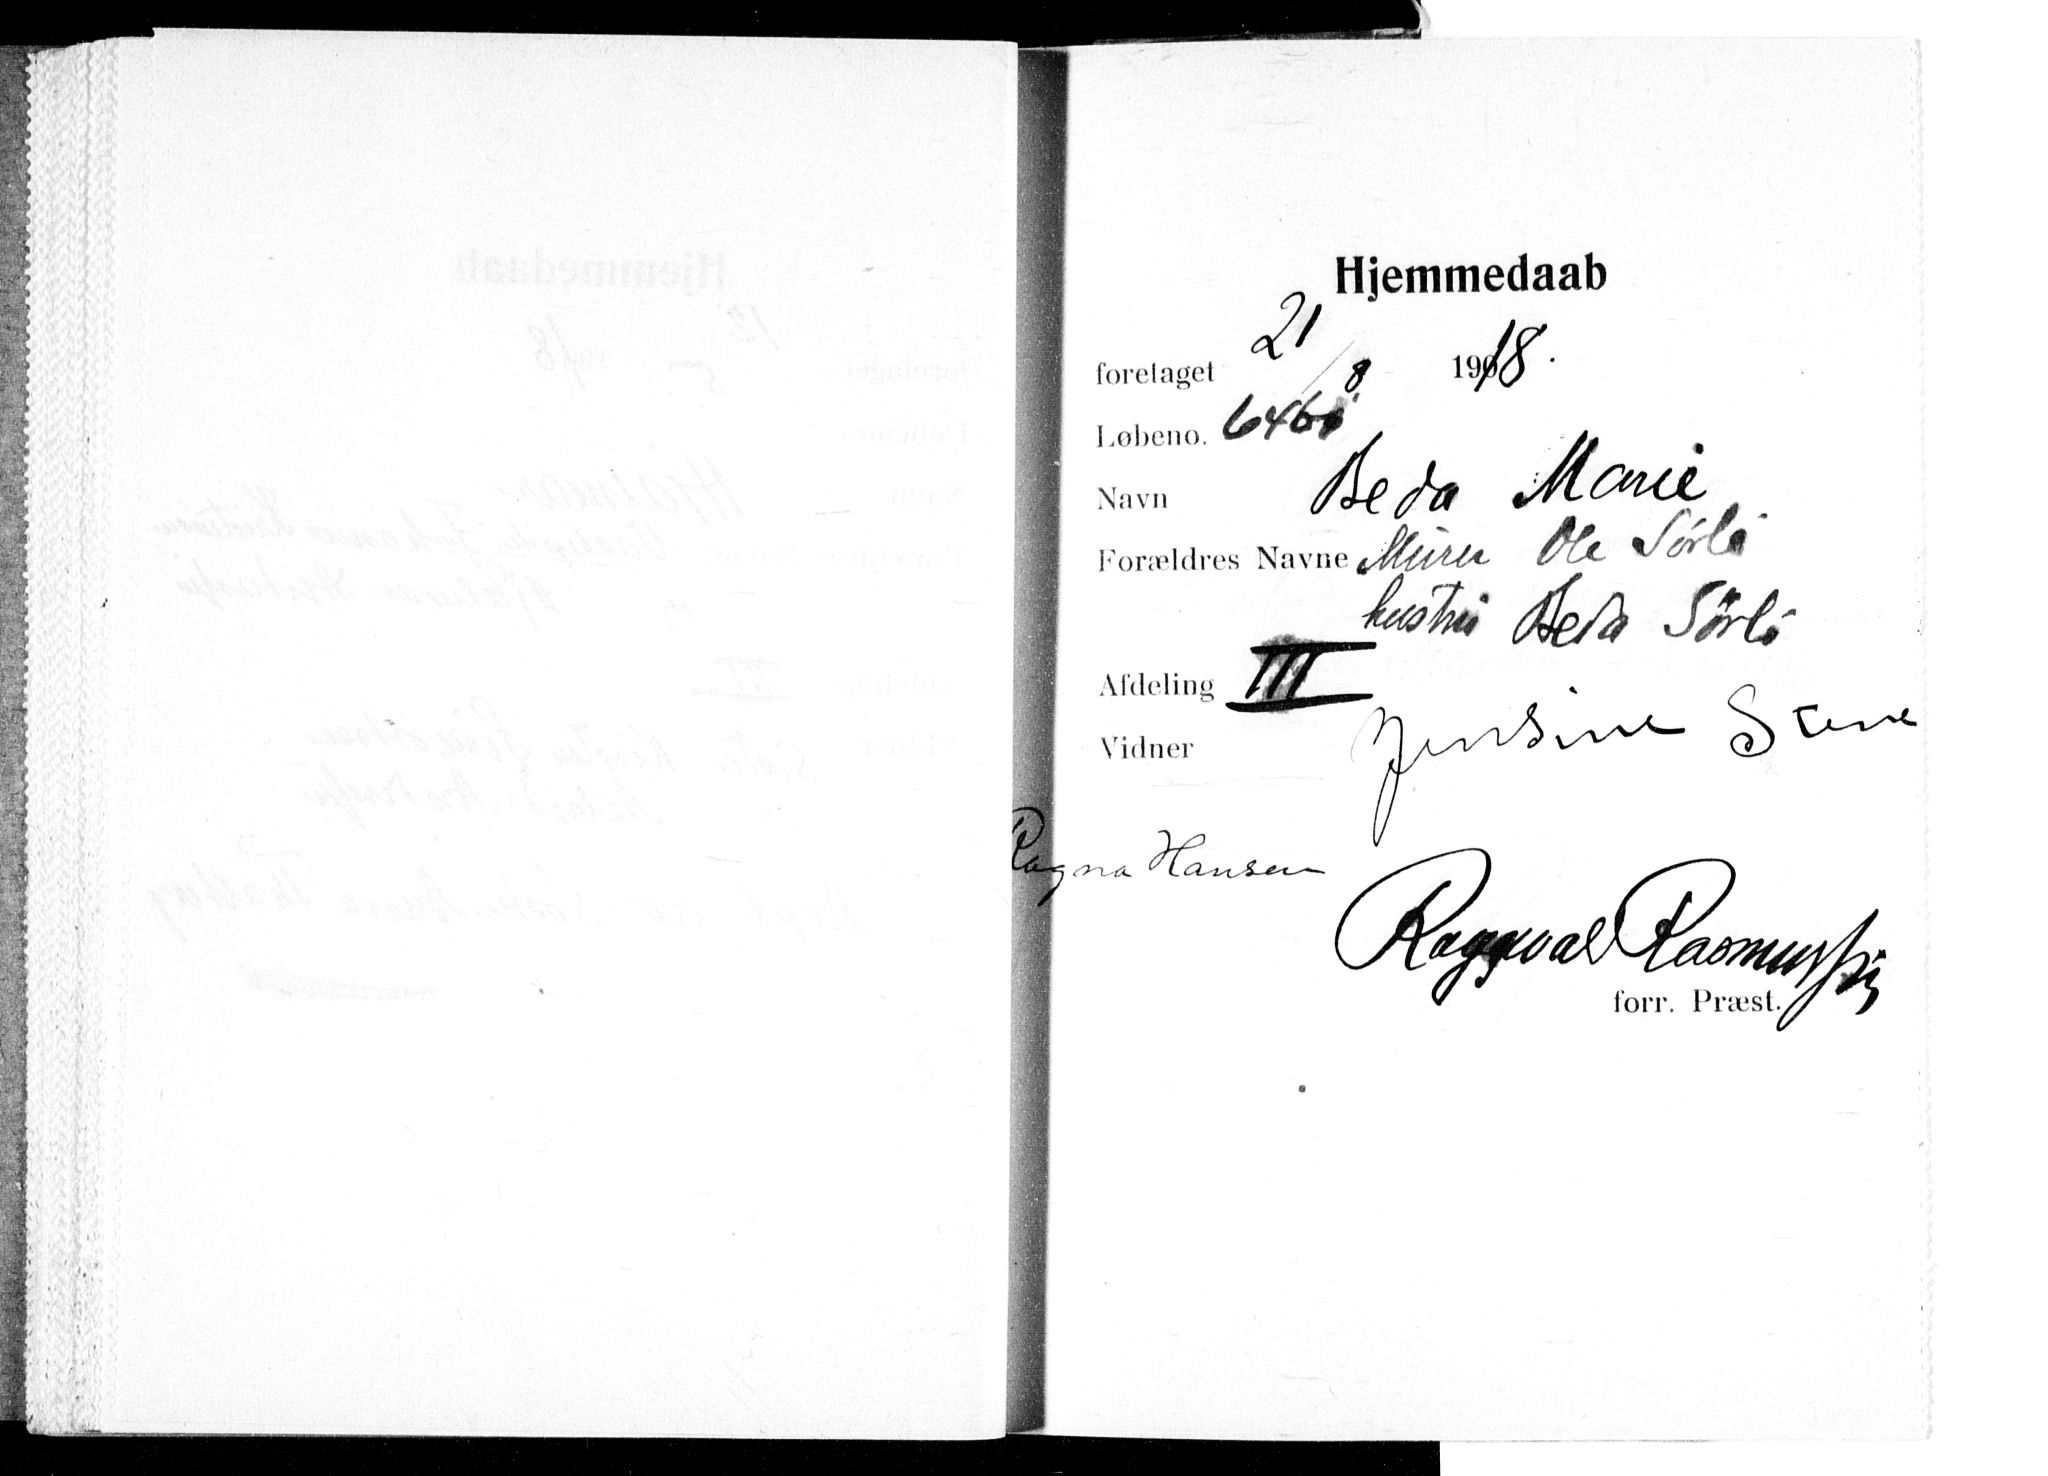 Hjemmedaab
foretaget 21/8 1918.
Løbeno.
Navn Beda Marie
Forældres Navne Murer Ole Sørli
hustru Beda Sørli
Afdeling III
Vidner Jensine Stene
Ragna Hansen
Ragnvald Rasmussen
forr. Præst.